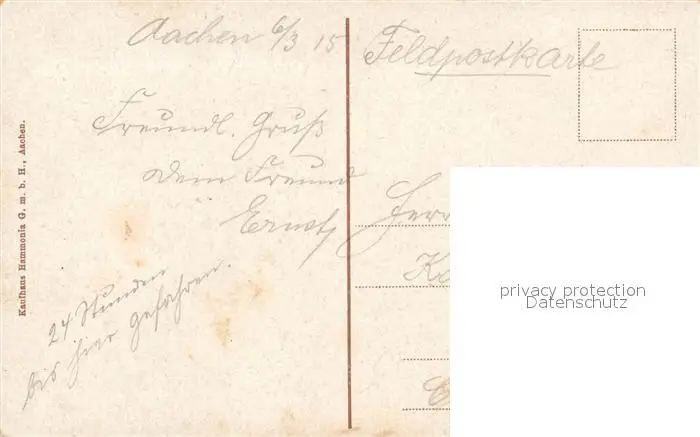 Aachen 6/3 15
Freundl. Gruß
dein Freund
Ernst
24 Stunden
bis hier gefahren.
Kaufhaus Hammonia G. m. b. H., Aachen.
Feldpostkarte
Herr
privacy protection
Datenschutz